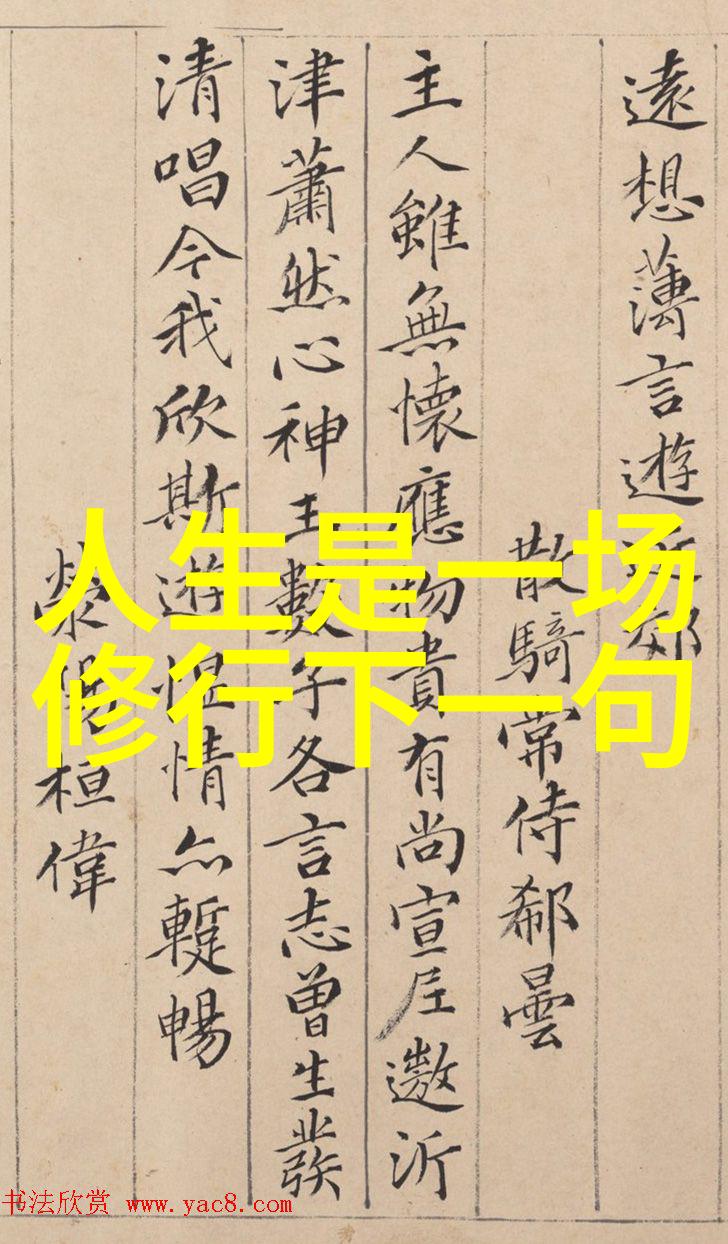 遠想薄言遊近郊
散騎常侍郗曇
主人雖無懷應物貴有尚宣尼遨沂
津蕭然心神王數子各言志曾生發
清唱今我欣斯遊慍情亦暫暢
滎陽桓偉
人生是一场
修行下一句
书法欣赏 www.yac8.com